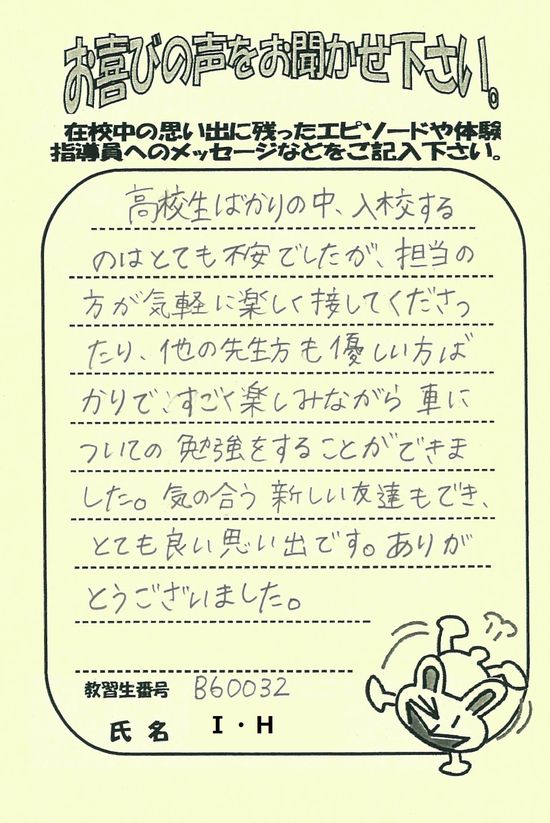 お喜びの声をお聞かせ下さい。
在校中の思い出に残ったエピソードや体験
指導員へのメッセージなどをご記入下さい。
高校生ばかりの中、入校する
のはとても不安でしたが、担当の
方が気軽に楽しく接してくださっ
たり、他の先生方も優しい方ば
かりで、すごく楽しみながら車に
ついての勉強をすることができま
した。気の合う新しい友達もでき、
とても良い思い出です。ありが
とうございました。
教習生番号 B60032
氏名 I・H